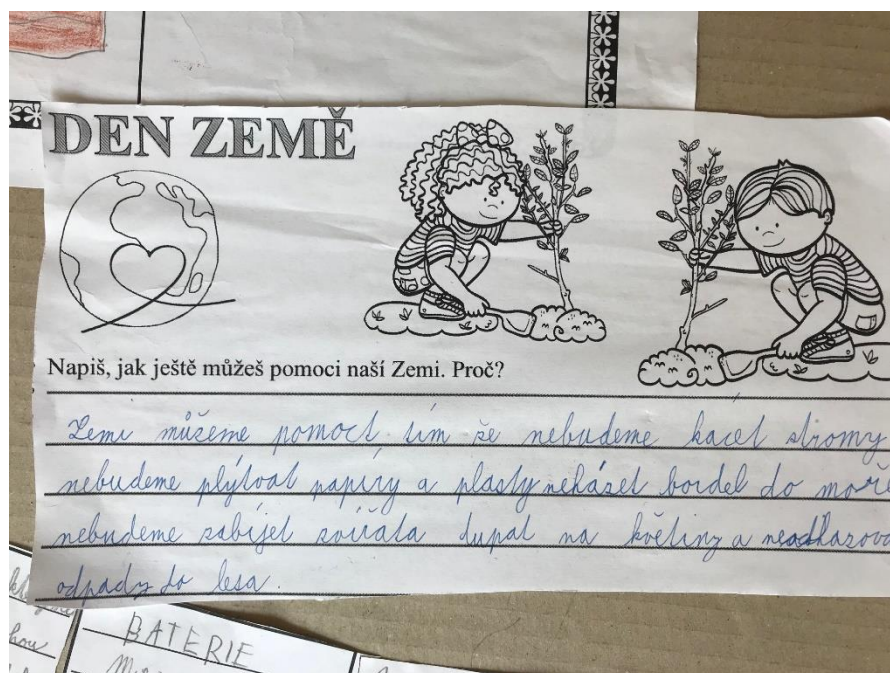 DEN ZEMĚ
Napiš, jak ještě můžeš pomoci naší Zemi. Proč?
Zemi můžeme pomoct tím že nebudeme kácet stromy
nebudeme plýtvat papíry a plasty neházet bordel do moře
nebudeme zabíjet zvířata dupat na květiny a
odpady do lesa.
BATERIE